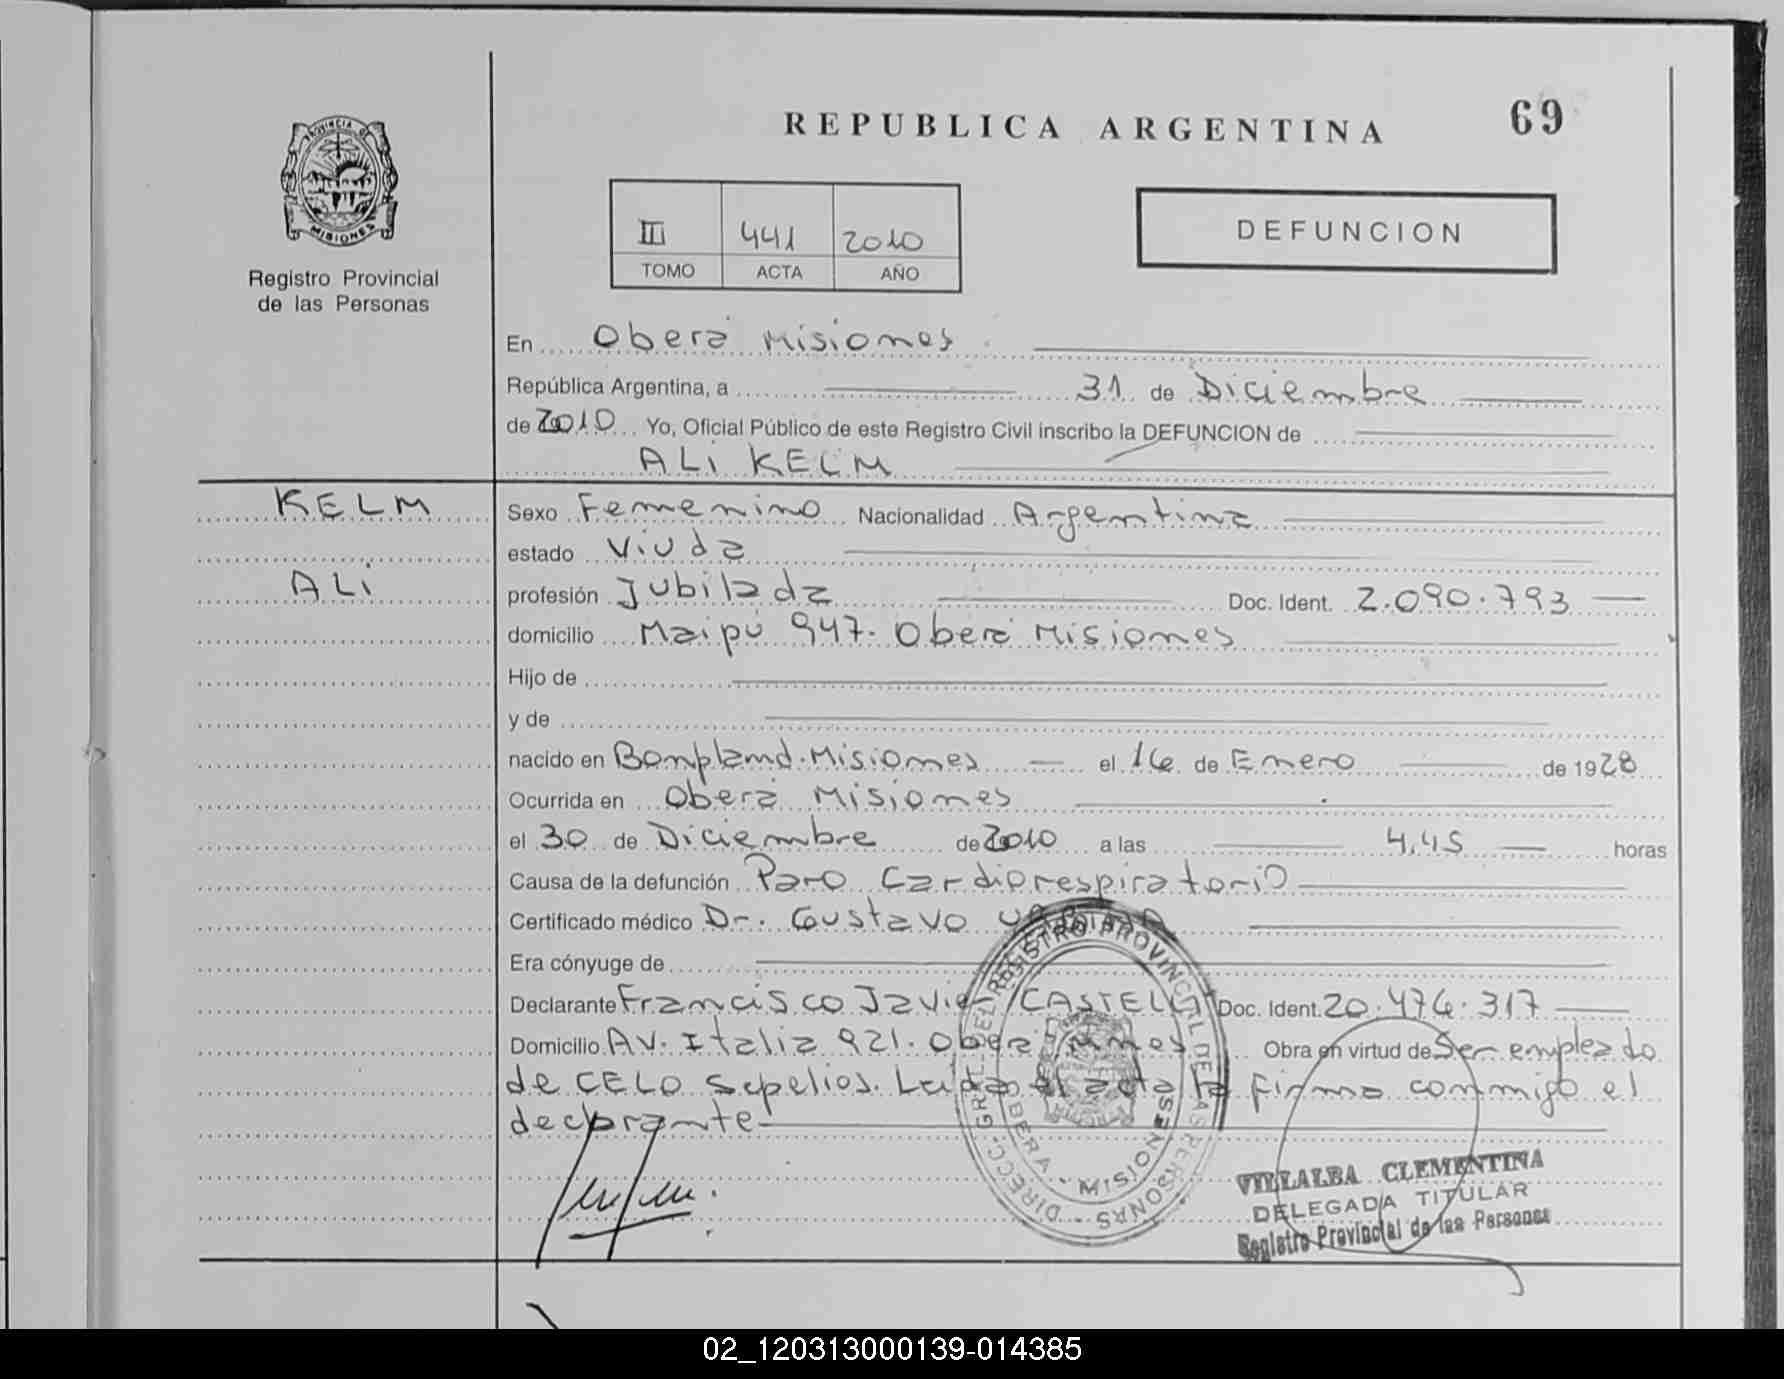 REPUBLICA ARGENTINA 69
PROVINCIA DE
MISIONES
Registro Provincial
de las Personas
III 441 2010
TOMO ACTA AÑO
DEFUNCION
En Oberá Misiones
República Argentina, a 31 de Diciembre
de 2010 Yo, Oficial Público de este Registro Civil inscribo la DEFUNCION de
ALi KELM
KELM
ALi
Sexo Femenino Nacionalidad Argentina
estado Viuda
profesión Jubilada Doc. Ident. 2.090.793
domicilio Maipú 947. Oberá Misiones
Hijo de
y de
nacido en Bonpland. Misiones el 16 de Enero de 1928
Ocurrida en Oberá Misiones
el 30 de Diciembre de 2010 a las 4,45 horas
Causa de la defunción Paro Cardiorespiratorio
Certificado médico Dr. Gustavo
Era cónyuge de
Declarante Francisco Javier CASTELLI Doc. Ident. 20.476.317
Domicilio Av. Italia 921. Oberá Mnes Obra en virtud de Ser empleado
de CELO Sepelios. Leida el acta la firma conmigo el
declarante
DIRECC. GRAL. DEL REGISTRO PROVINCIAL DE LAS PERSONAS
OBERA - MISIONES
VILLALBA CLEMENTINA
DELEGADA TITULAR
Registro Provincial de las Personas
02_120313000139-014385